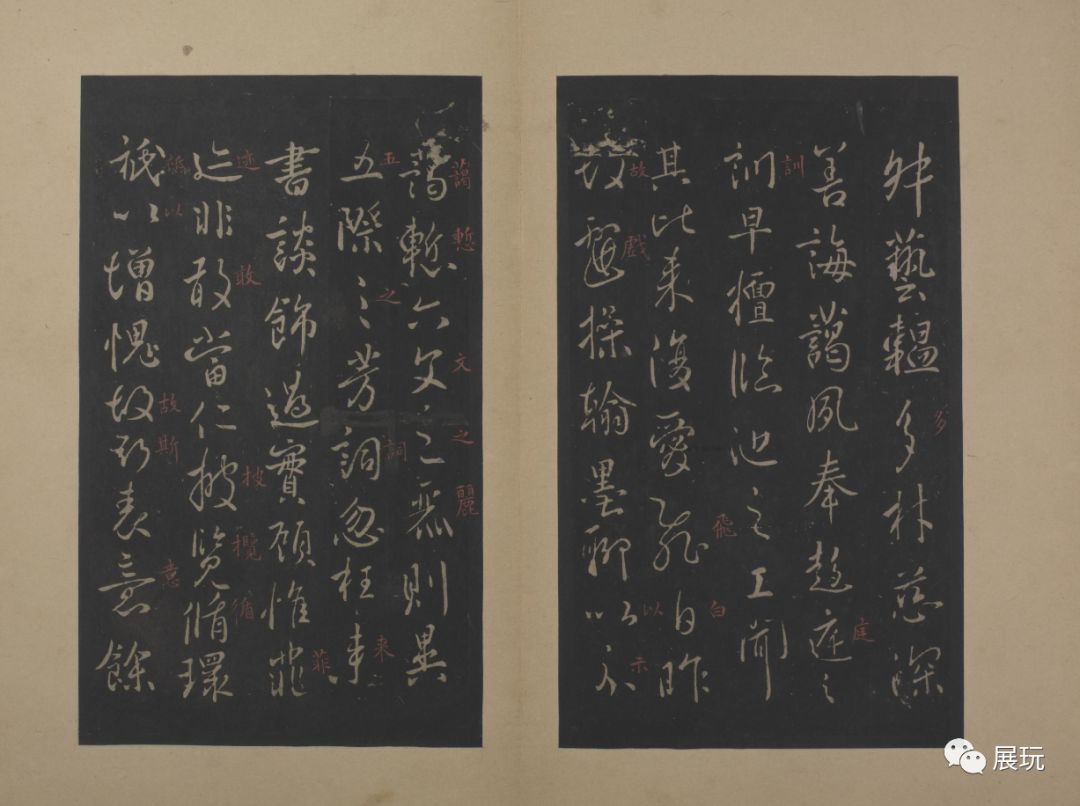 叔藝韞多材慈深
多
善誨藹夙奉趍庭之
庭
訓早擅臨池之工聞
訓
其比來復愛飛白昨
飛白
故戲操翰墨聊以示
故戲以示
藹慙六文之麗則異
藹慙文之麗
五際之芳詞忽枉來
五之詞来
書談飾過實顧惟菲
菲
迹非敢當仁披覽循環
迹敢披攬循
祇以增愧故斯表意餘
祇以故斯意
展玩